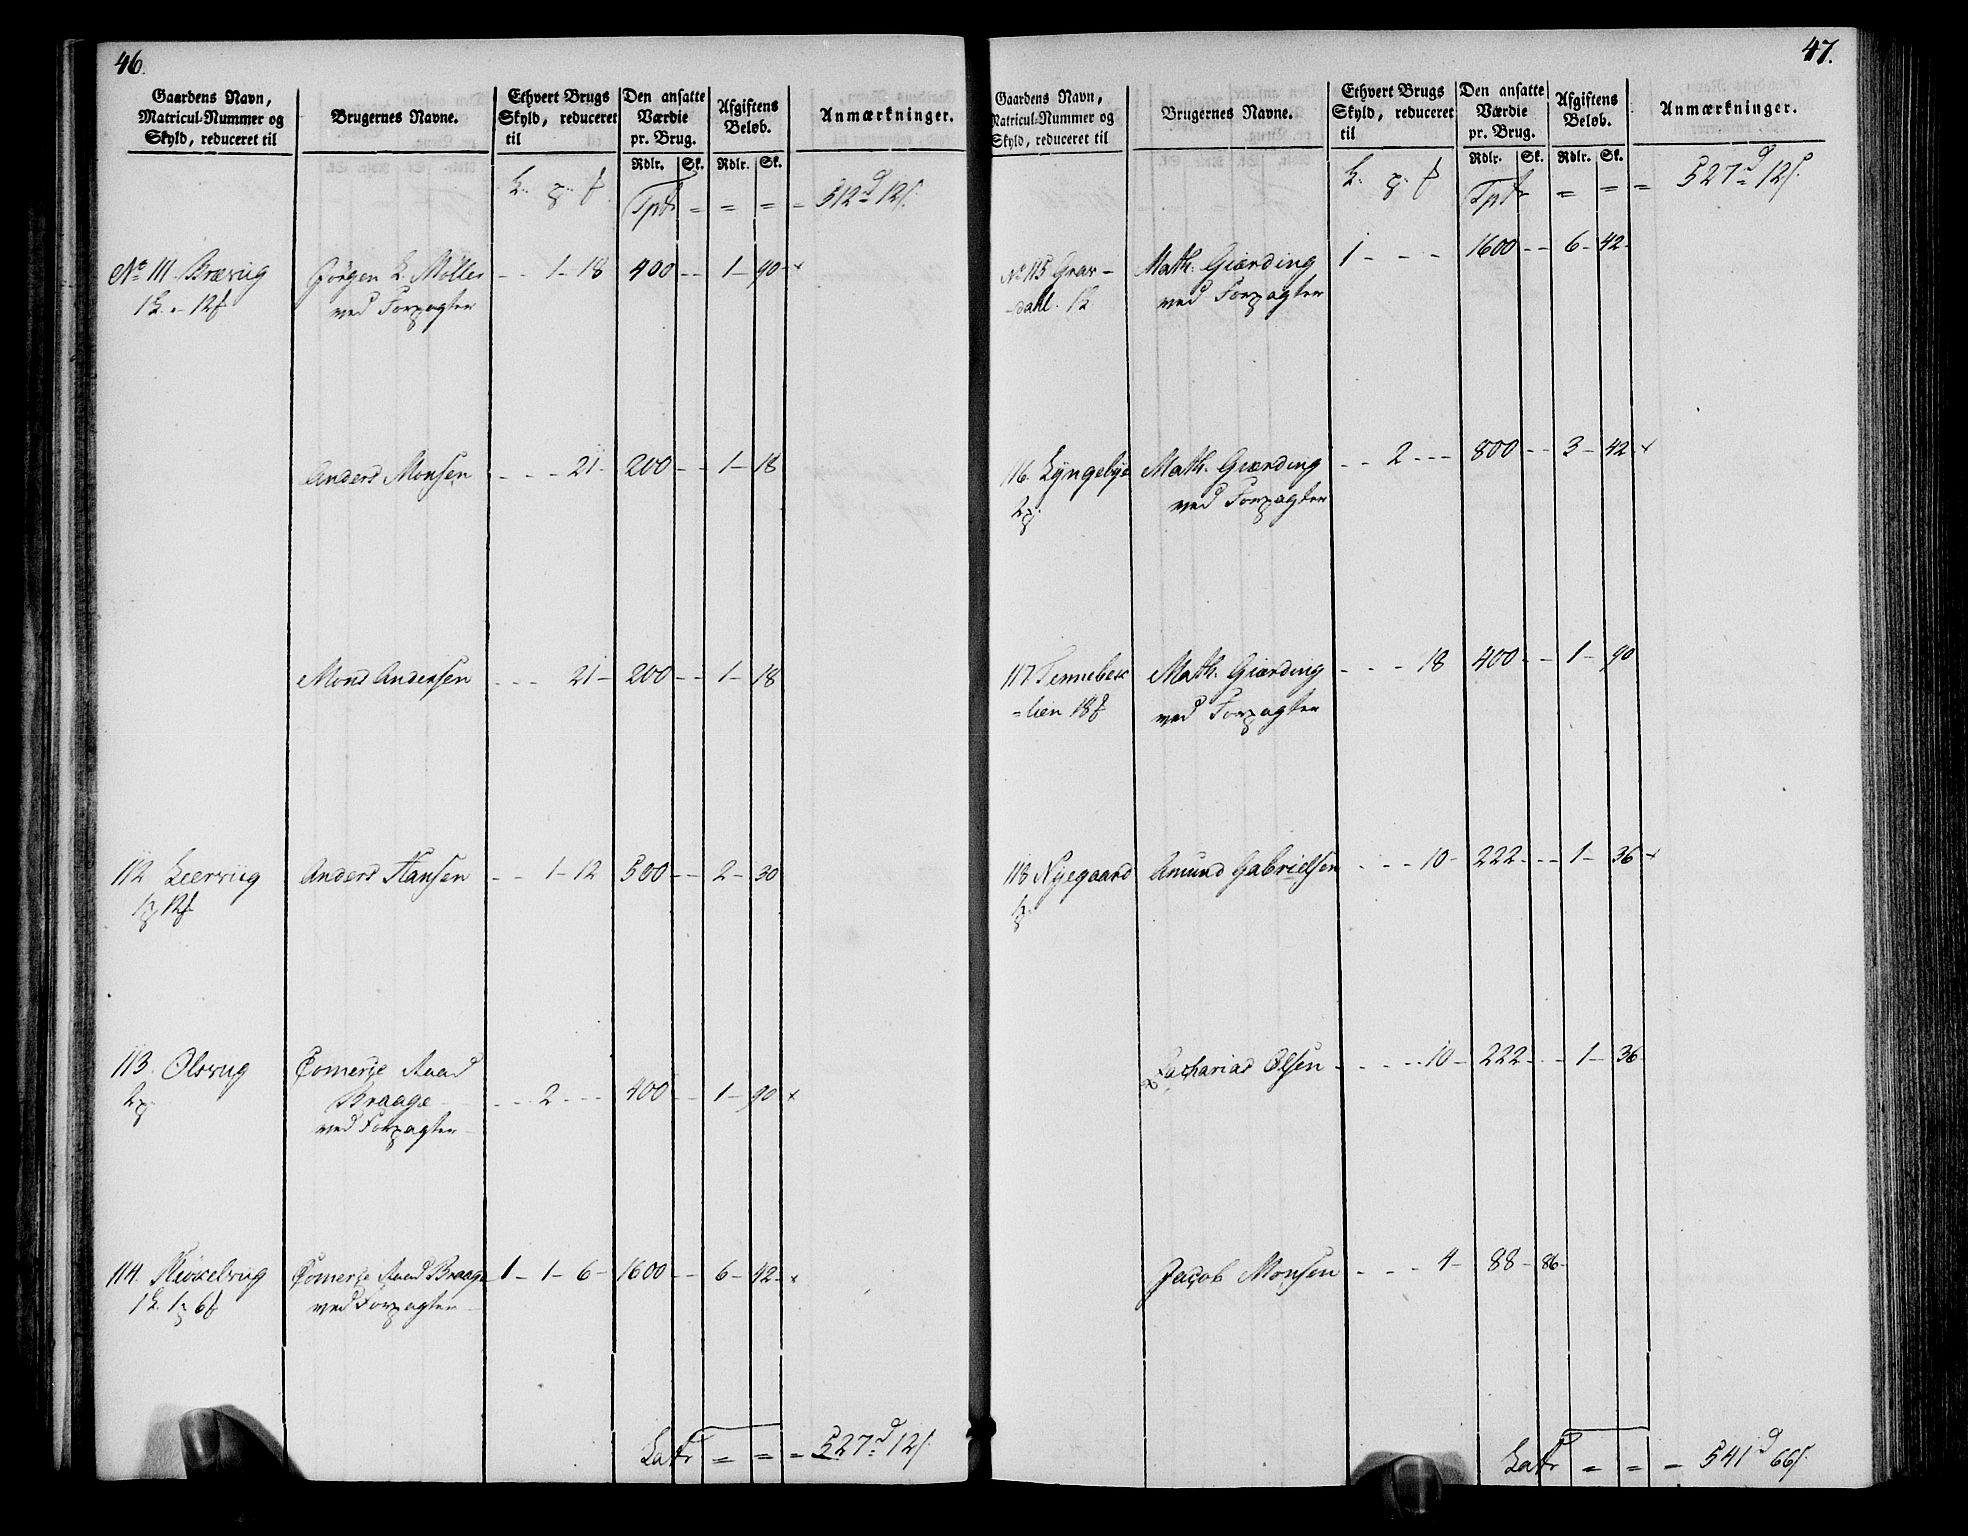 46.
Gaardens Navn,
Matricul-Nummer og
Skyld, reduceret til
Brugernes Navne.
Ethvert Brugs
Skyld, reduceret
til
Den ansatte
Værdie
pr. Brug.
Afgiftens
Beløb.
Anmærkninger.
Rdlr. Sk. Rdlr. Sk.
Tpt = = = = 512 d 12 s.
No 111. Brævig Jörgen L. Möller - - 1 - 18 400 - - 1 - 90 - x
1 L. - 12 f ved Forpagter
Anders Monsen - - - 21 - 200 - - 1 - 18
Mons Andersen - - - 21 - 200 - - 1 - 18
112 Leervig Anders Hansen - - 1 - 12 500 - - 2 - 30
1 p 12 f
113. Olsvig Comerse Raad
2 p. Braage - - 2 - - - 400 - - 1 - 90 x
ved Forpagter
114. Comerse Raad Braage 1 - 1 - 6 - 1600 - - 6 - 42 - x
1 L. 1 p 6 f ved Forpagter
Latr = = = 527 d 12 s.
47.
Gaardens Navn,
Matricul-Nummer og
Skyld, reduceret til
Brugernes Navne.
Ethvert Brugs
Skyld, reduceret
til
Den ansatte
Værdie
pr. Brug.
Afgiftens
Beløb.
Anmærkninger.
Rdlr. Sk. Rdlr. Sk.
L. p. f Tpt = = = 527 d 12 s.
No 115 Grav- Math. Giærding 1 - - - 1600 - - 6 - 42 -
-dahl. 1 L ved Forpagter
116. Lyngebye Math. Giærding - - 2 - - - 800 - - 3 - 42 - x
2 p. ved Forpagter
117 Tennebek Math. Giærding - - - 18 400 - - 1 - 90
=lien 18 f ved Forpagter
118 Nyegaard Amund Gabrielsen - - - 10 - 222 - - - 1 - 36 - x
1 p.
Zacharias Olsen - - - - 10 - 222 - - - 1 - 36
Jacob Monsen - - - 4 - 88 - 86 -
Latr = = = 541 d 66 s.